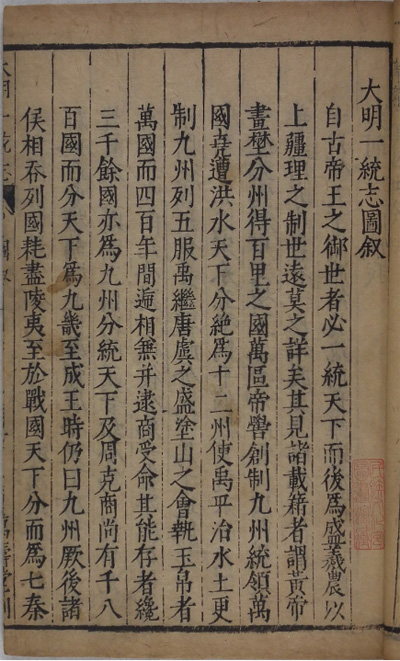 大明一統志圖叙
自古帝王之御世者必一統天下而後爲盛羲農以
上疆理之制世遠莫之詳矣其見諸載籍者謂黃帝
畫壄分州得百里之國萬區帝嚳創制九州統領萬
國堯遭洪水天下分絶爲十二州使禹平治水土更
制九州列五服禹繼唐虞之盛塗山之會執玉帛者
萬國而四百年間遞相兼并逮商受命其能存者纔
三千餘國亦爲九州分統天下及周克商尚有千八
百國而分天下爲九畿至成王時仍曰九州厥後諸
侯相吞列國耗盡陵夷至於戰國天下分而爲七秦